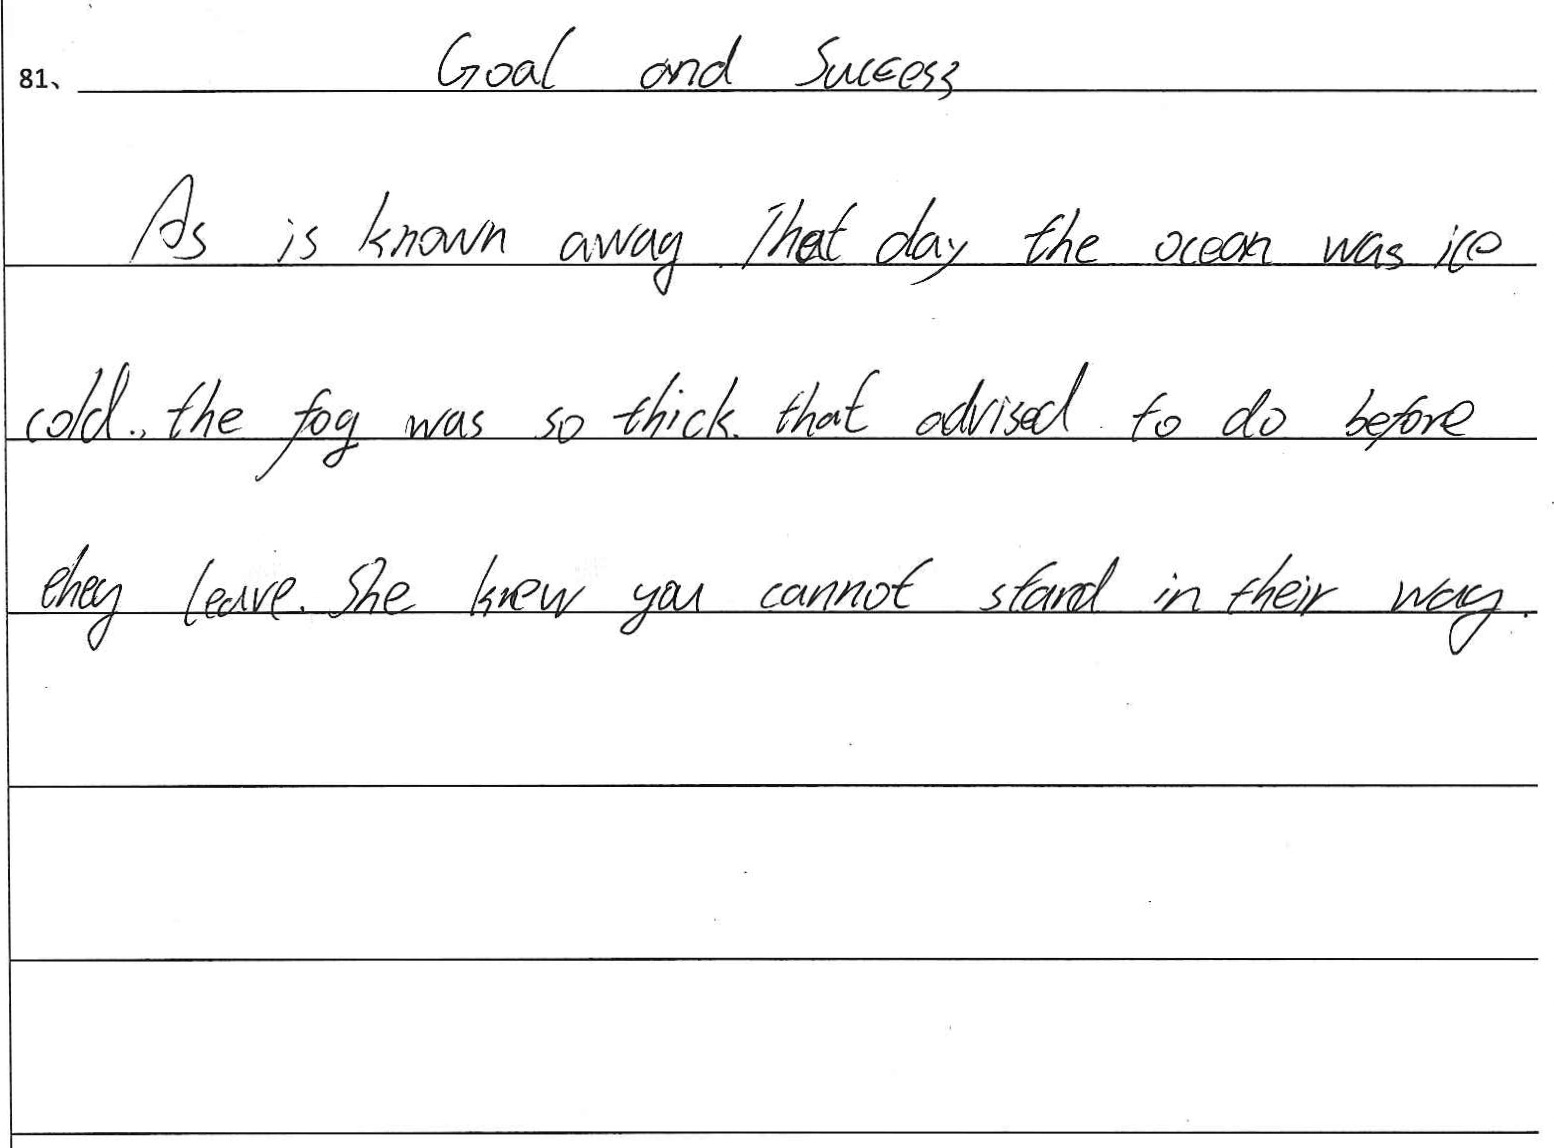 81、 Goal and Success
As is known away. That day the ocean was ice
cold., the fog was so thick. that advised to do before
they leave. She knew you cannot stand in their way.